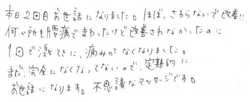 本日2回目お世話になりました。ほぼ、さわらないで改善!!
何ヶ所も腰痛でまわったけど改善されなかったのに
1回で活せきに、痛みがなくなりました。
まだ、完全になくなってないので、定期的に
お世話になります。不思議なマッサージです。